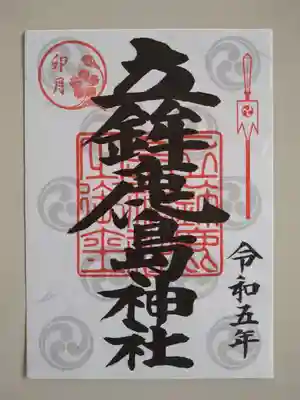 卯月
立鉾鹿島神社
令和五年